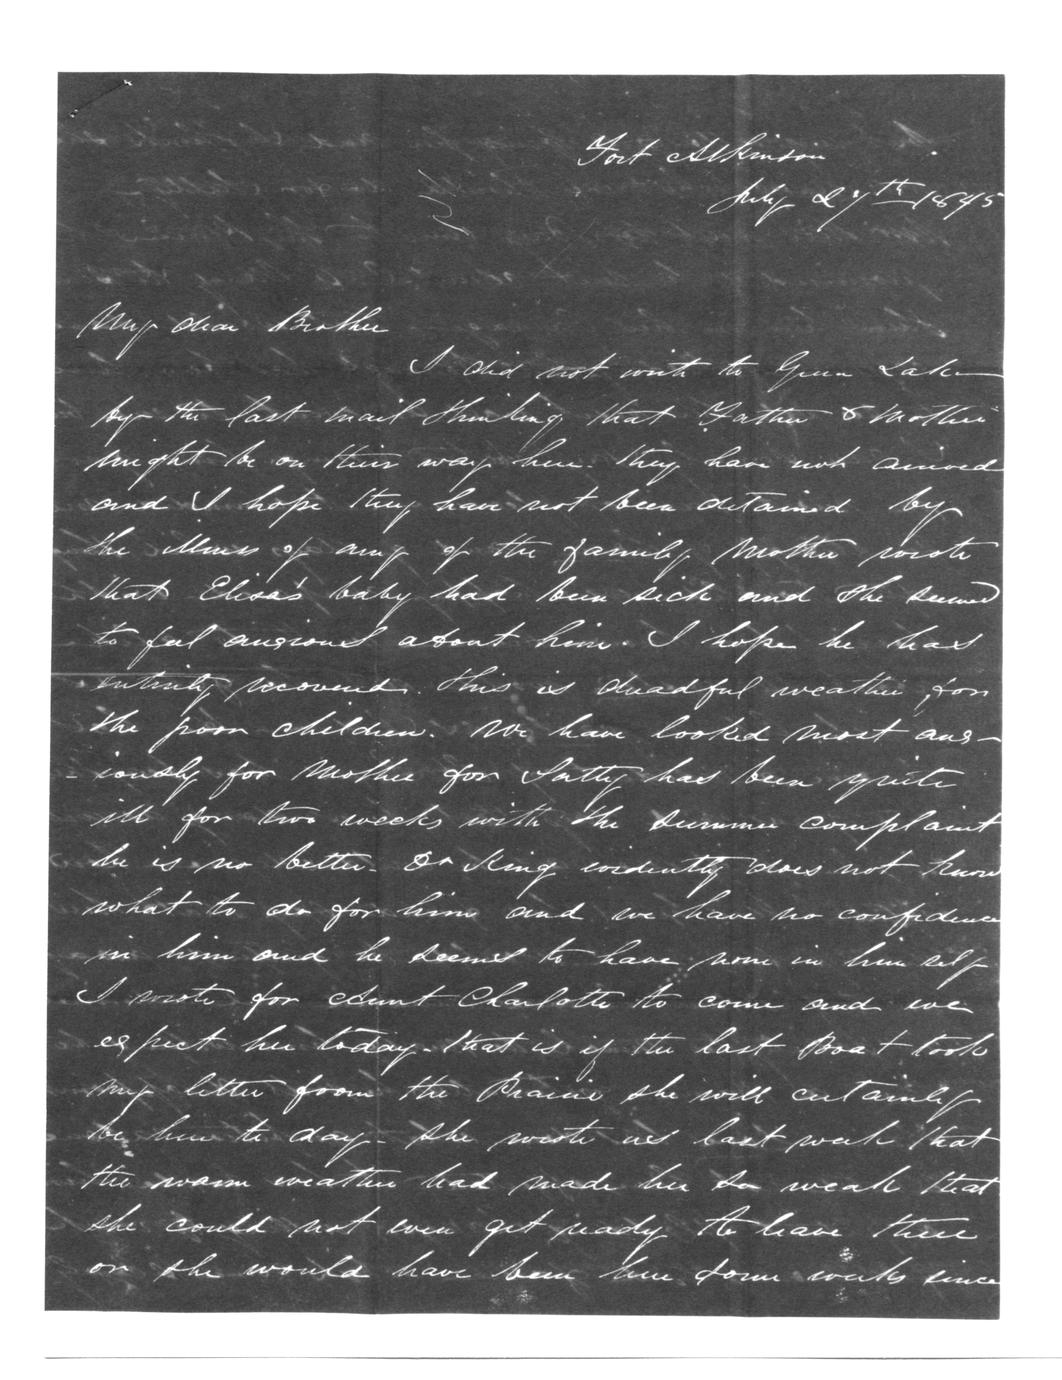 Fort Atkinson
July 27th 1845
My dear Brother
I did not write to Green Lake
by the last mail thinking that Father & Mother
might be on their way here. They have not arrived
and I hope they have not been detained by
the illness of any of the family Mother wrote
that Elisa's baby had been sick and she seemed
to feel anxious about him. I hope he has
entirely recovered. This is dreadful weather for
the poor children. We have looked most anx-
-iously for Mother for Satty has been quite
ill for two weeks with the summer complaint
he is no better. Dr King evidently does not know
what to do for him and we have no confidence
in him and he seems to have none in him self
I wrote for Aunt Charlotte to come and we
expect her today. that is if the last Boat took
my letter from the Prairie she will certainly
be here to day - she wrote us last week that
the warm weather had made her so weak that
she could not even get ready to leave there
or she would have been here some weeks since